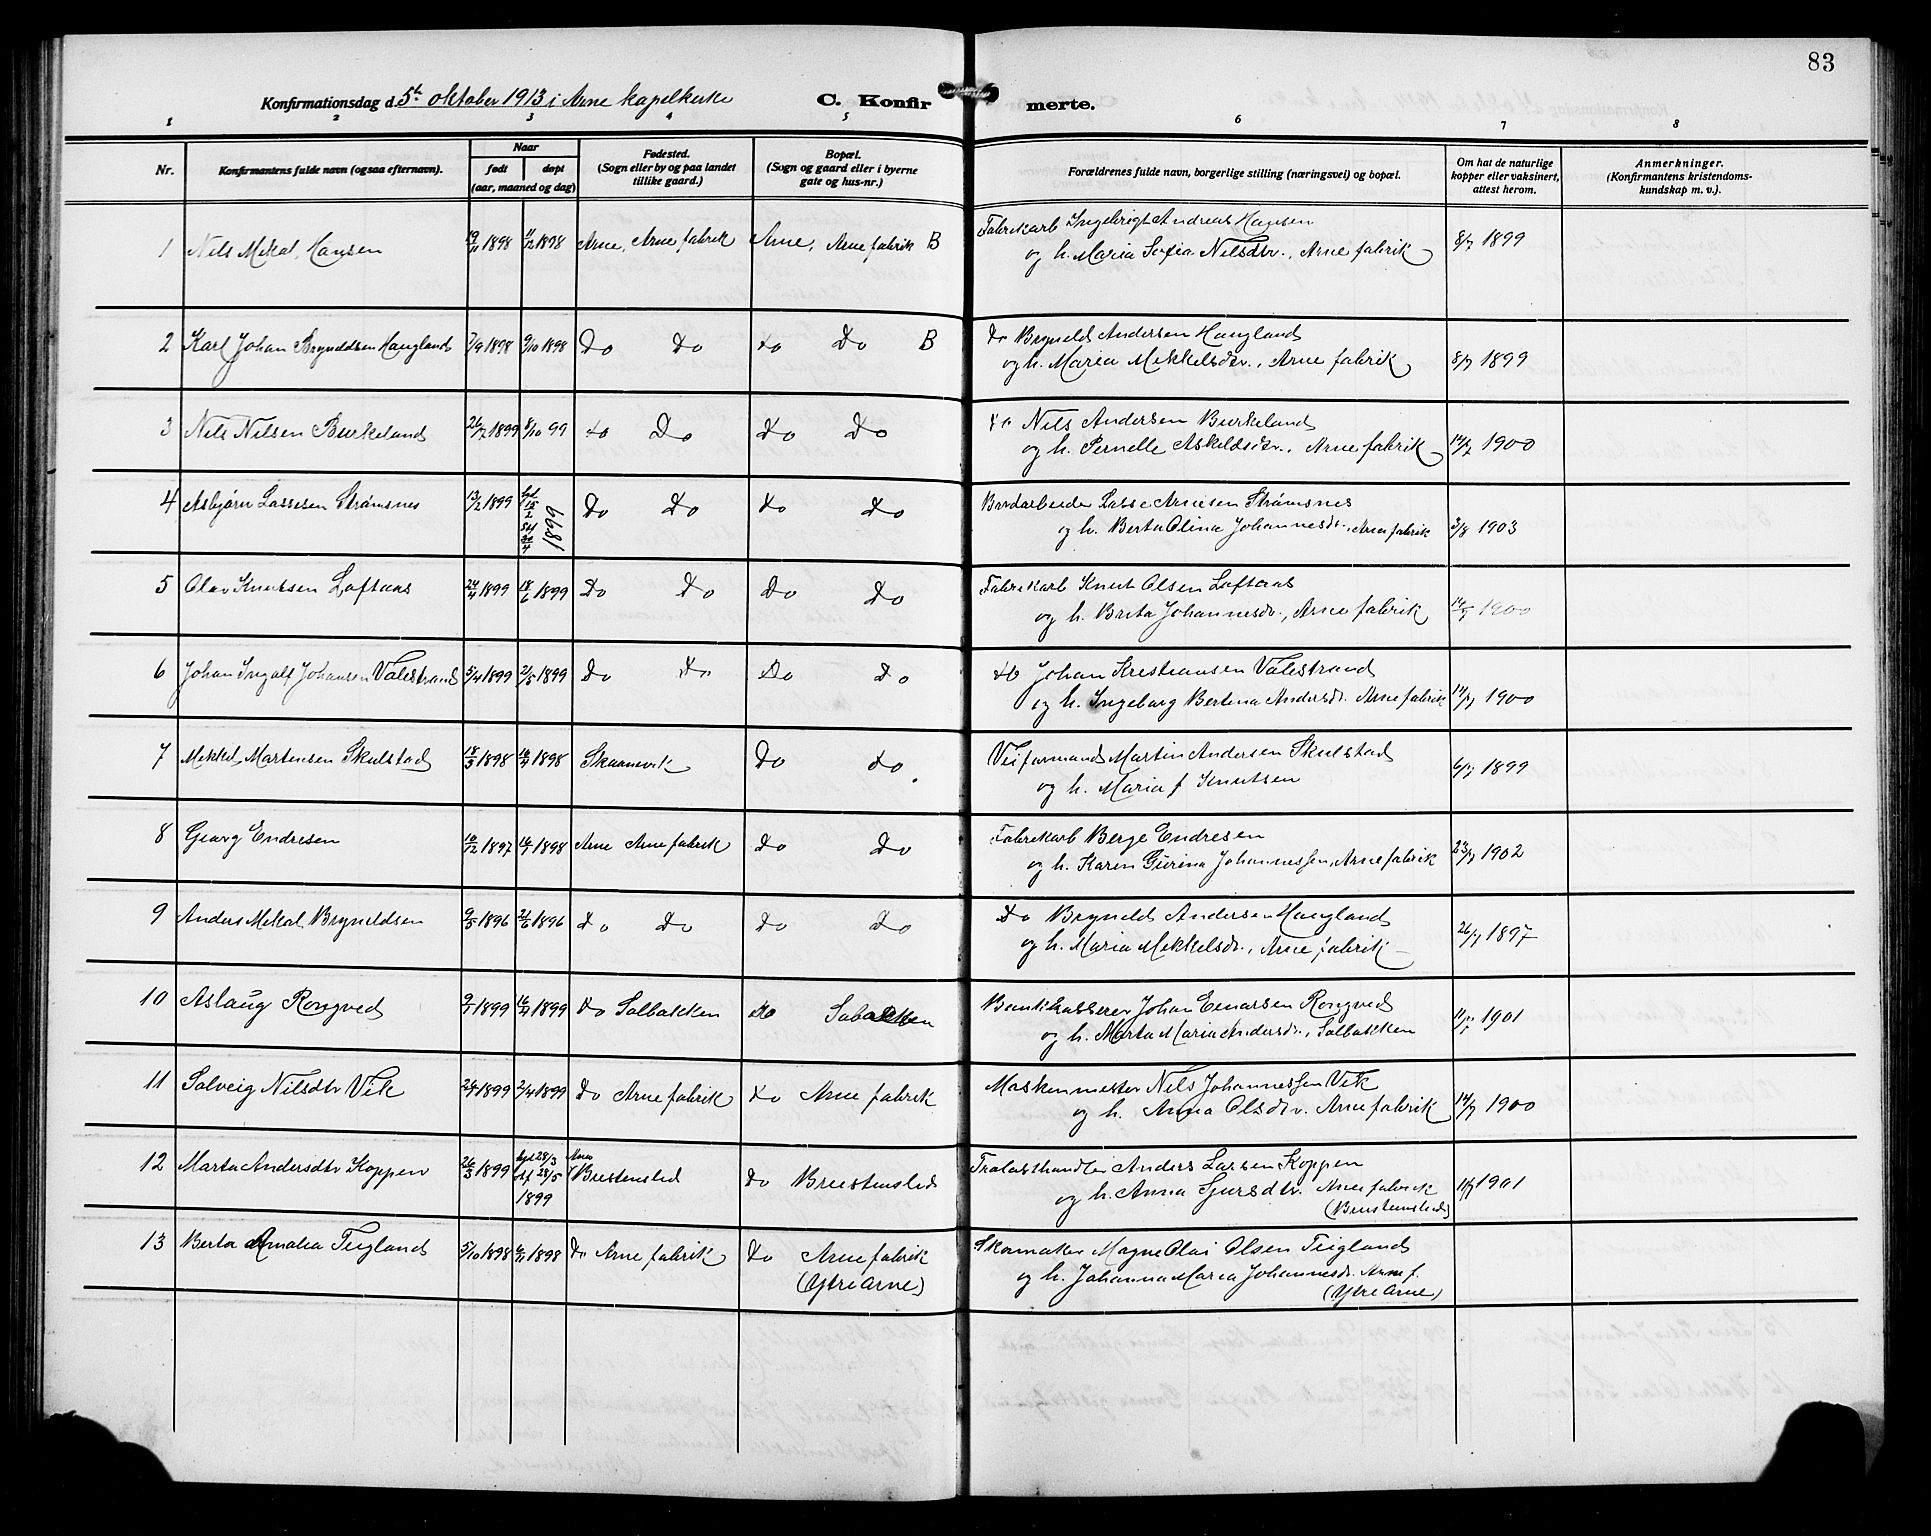 83
Konfirmationsdag d. 5te oktober 1913 i Arne kapelkirke C. Konfirmerte.
1 2 3 4 5 6 7 8
Nr. Konfirmantens fulde navn (ogsaa efternavn). Naar født døpt (aar, maaned og dag) Fødested. (Sogn eller by og paa landet tillike gaard.) Bopæl. (Sogn og gaard eller i byerne gate og hus-nr.) Forældrenes fulde navn, borgerlige stilling (næringsvei) og bopæl. Om hat de naturlige kopper eller vaksinert, attest herom. Anmerkninger. (Konfirmantens kristendomskundskap m. v.).
1 Nils Mikal Hansen 19/11 1898 11/12 1898 Arne, Arne fabrik Arne, Arne fabrik B Fabrikarb Ingebrigt Andreas Hansen 8/7 1899
og h. Maria Sofia Nilsdtr., Arne fabrik
2 Karl Johan Bryneldsen Haugland 7/9 1898 9/10 1898 Do Do Do Do B Do Bryneld Andersen Haugland
og h. Maria Mikkelsdtr., Arne fabrik 8/7 1899
3 Nils Nilsen Birkeland 26/7 1899 8/10 99 Do Do Do Do Do Nils Andersen Birkeland
og h. Pernelle Askeldsdtr., Arne fabrik 14/7 1900
4 Asbjørn Lassesen Strømsnes 13/2 1899 hd 15/2 st 30/4 1899 Do Do Do Do Bordarbeider Lasse Arnesen Strømsnes
og h. Berta Olina Johannesdr., Arne fabrik 3/8 1903
5 Olav Knutsen Loftaas 24/4 1899 18/6 1899 Do Do Do Do Fabrikarb Knut Olsen Loftaas
og h. Brita Johannesdr., Arne fabrik 14/7 1900
6 Johan Ingolf Johansen Valestrand 5/4 1899 21/5 1899 Do Do Do Do do Johan Kristiansen Valestrand
og h. Ingeborg Bertina Andersdr. Arne fabrik 14/7 1900
7 Mikkel Martinsen Skulstad 18/3 1898 1898 Skaanevik Do Do Veiformand Martin Andersen Skulstad
og h. Maria f Knutsen 6/7 1899
8 Georg Endresen 10/12 1897 1898 Arne Arne fabrik Do Do Fabrikarb Berge Endresen
og h. Karen Gurina Johannessen, Arne fabrik 23/7 1902
9 Anders Mikal Bryneldsen 9/5 1896 21/6 1896 Do Do Do Do Do Bryneld Andersen Haugland
og h. Maria Mikkelsdr., Arne fabrik 26/7 1897
10 Aslaug Rongved 1899 1899 Do Solbakken Do Solbakken Bankkasserer Johan Einarsen Rongved
og h. Marta Maria Andersdr., Solbakken 1901
11 Solveig Nilsdtr Vik 1899 2/4 1899 Do Arne fabrik Do Arne fabrik Maskinmester Nils Johannessen Vik
og h. Anna Olsdtr. Arne fabrik 14/7 1900
12 Marta Andersdtr Koppen 26/3 1899 hjd 28/3 stf 28/5 1899 Arne Brustensled Do Brustensled Trælasthandler Anders Larsen Koppen
og h. Anna Sjursdtr. Arne fabrik 1901
(Brustensled)
13 Berta Amalia Teigland 5/10 1898 1898 Do Arne fabrik Do Arne fabrik (Ytre Arne) Skomaker Magne Olai Olsen Teigland
og h. Johanna Maria Johannesdr. Arne f.
(Ytre Arne)